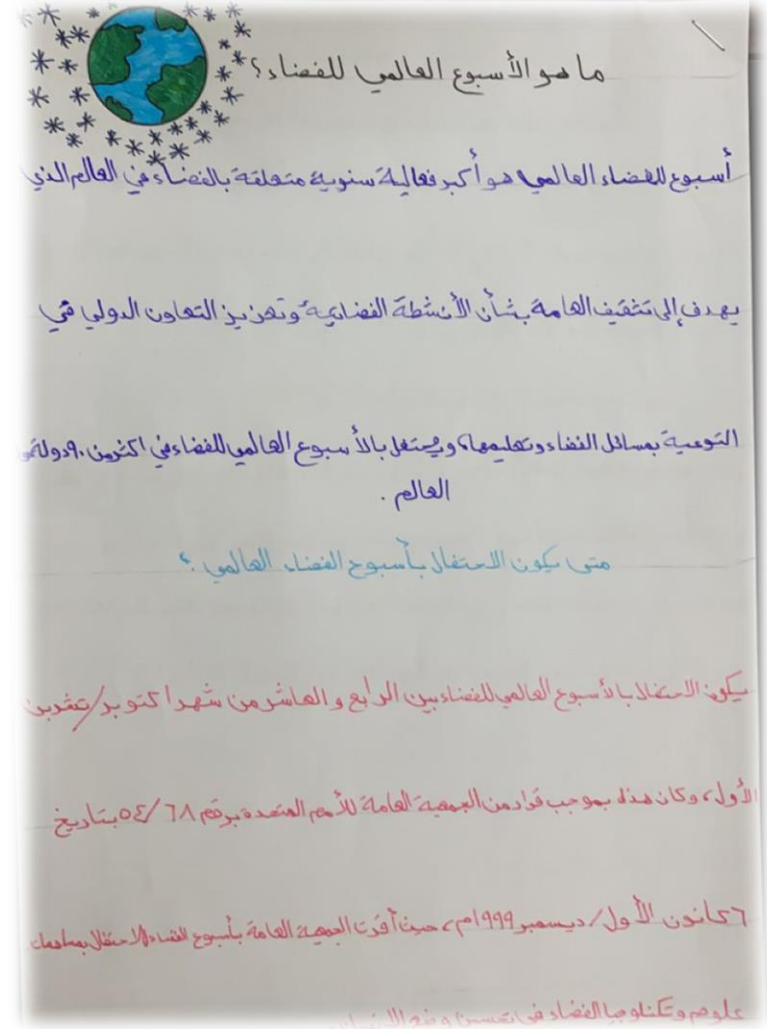 ما هو الأسبوع العالمي للفضاء؟
أسبوع الفضاء العالمي هو أكبر فعالية سنوية متعلقة بالفضاء في العالم الذي
يهدف إلى تثقيف العامة بشأن الأنشطة الفضائية وتعزيز التعاون الدولي في
التوعية بمسائل الفضاء وتعليمها، ويحتفل بالأسبوع العالمي للفضاء في اكثر من ٩٠ دولة
العالم .
متى يكون الاحتفال بأسبوع الفضاء العالمي ؟
يكون الاحتفال بالأسبوع العالمي للفضاء بين الرابع والعاشر من شهر اكتوبر/تشرين
الأول، وكان هذا بموجب قرار من الجمعية العامة للأمم المتحدة برقم ٥٤/٦٨ بتاريخ
٦ كانون الأول/ديسمبر ١٩٩٩م، حيث أقرت الجمعية العامة بأسبوع الفضاء الاحتفال بمساهمات
علوم وتكنولوجيا الفضاء في تحسين وضع الإنسان